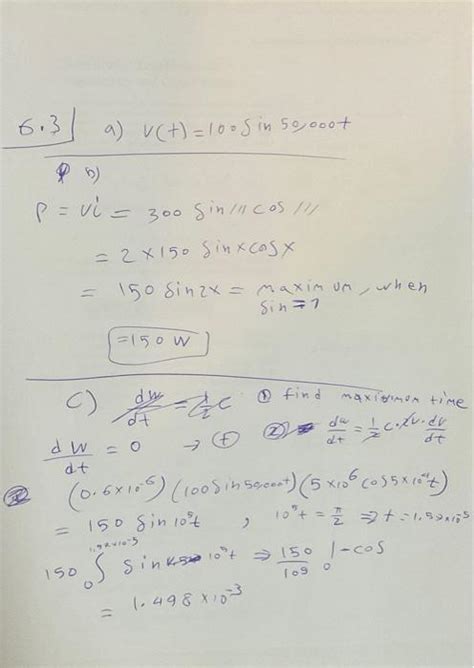 6.3 a) v(t) = 100 sin 50,000t
b)
P = vi = 300 sin /// cos ///
= 2 × 150 sin x cos x
= 150 sin 2x = maximum, when
sin = 1
= 150 W
c) dw/dt = 1/2 C ① find maximum time
dw/dt = 0 → t ② dw/dt = 1/2 C · 2V · dv/dt
(0.6×10⁻⁶)(100 sin 50,000t)(5×10⁶ cos 5×10⁴t)
= 150 sin 10⁵t , 10⁵t = π/2 ⇒ t = 1.57×10⁻⁵
150 ∫₀ sin 10⁵t ⇒ 150/10⁵ | - cos
= 1.498 × 10⁻³